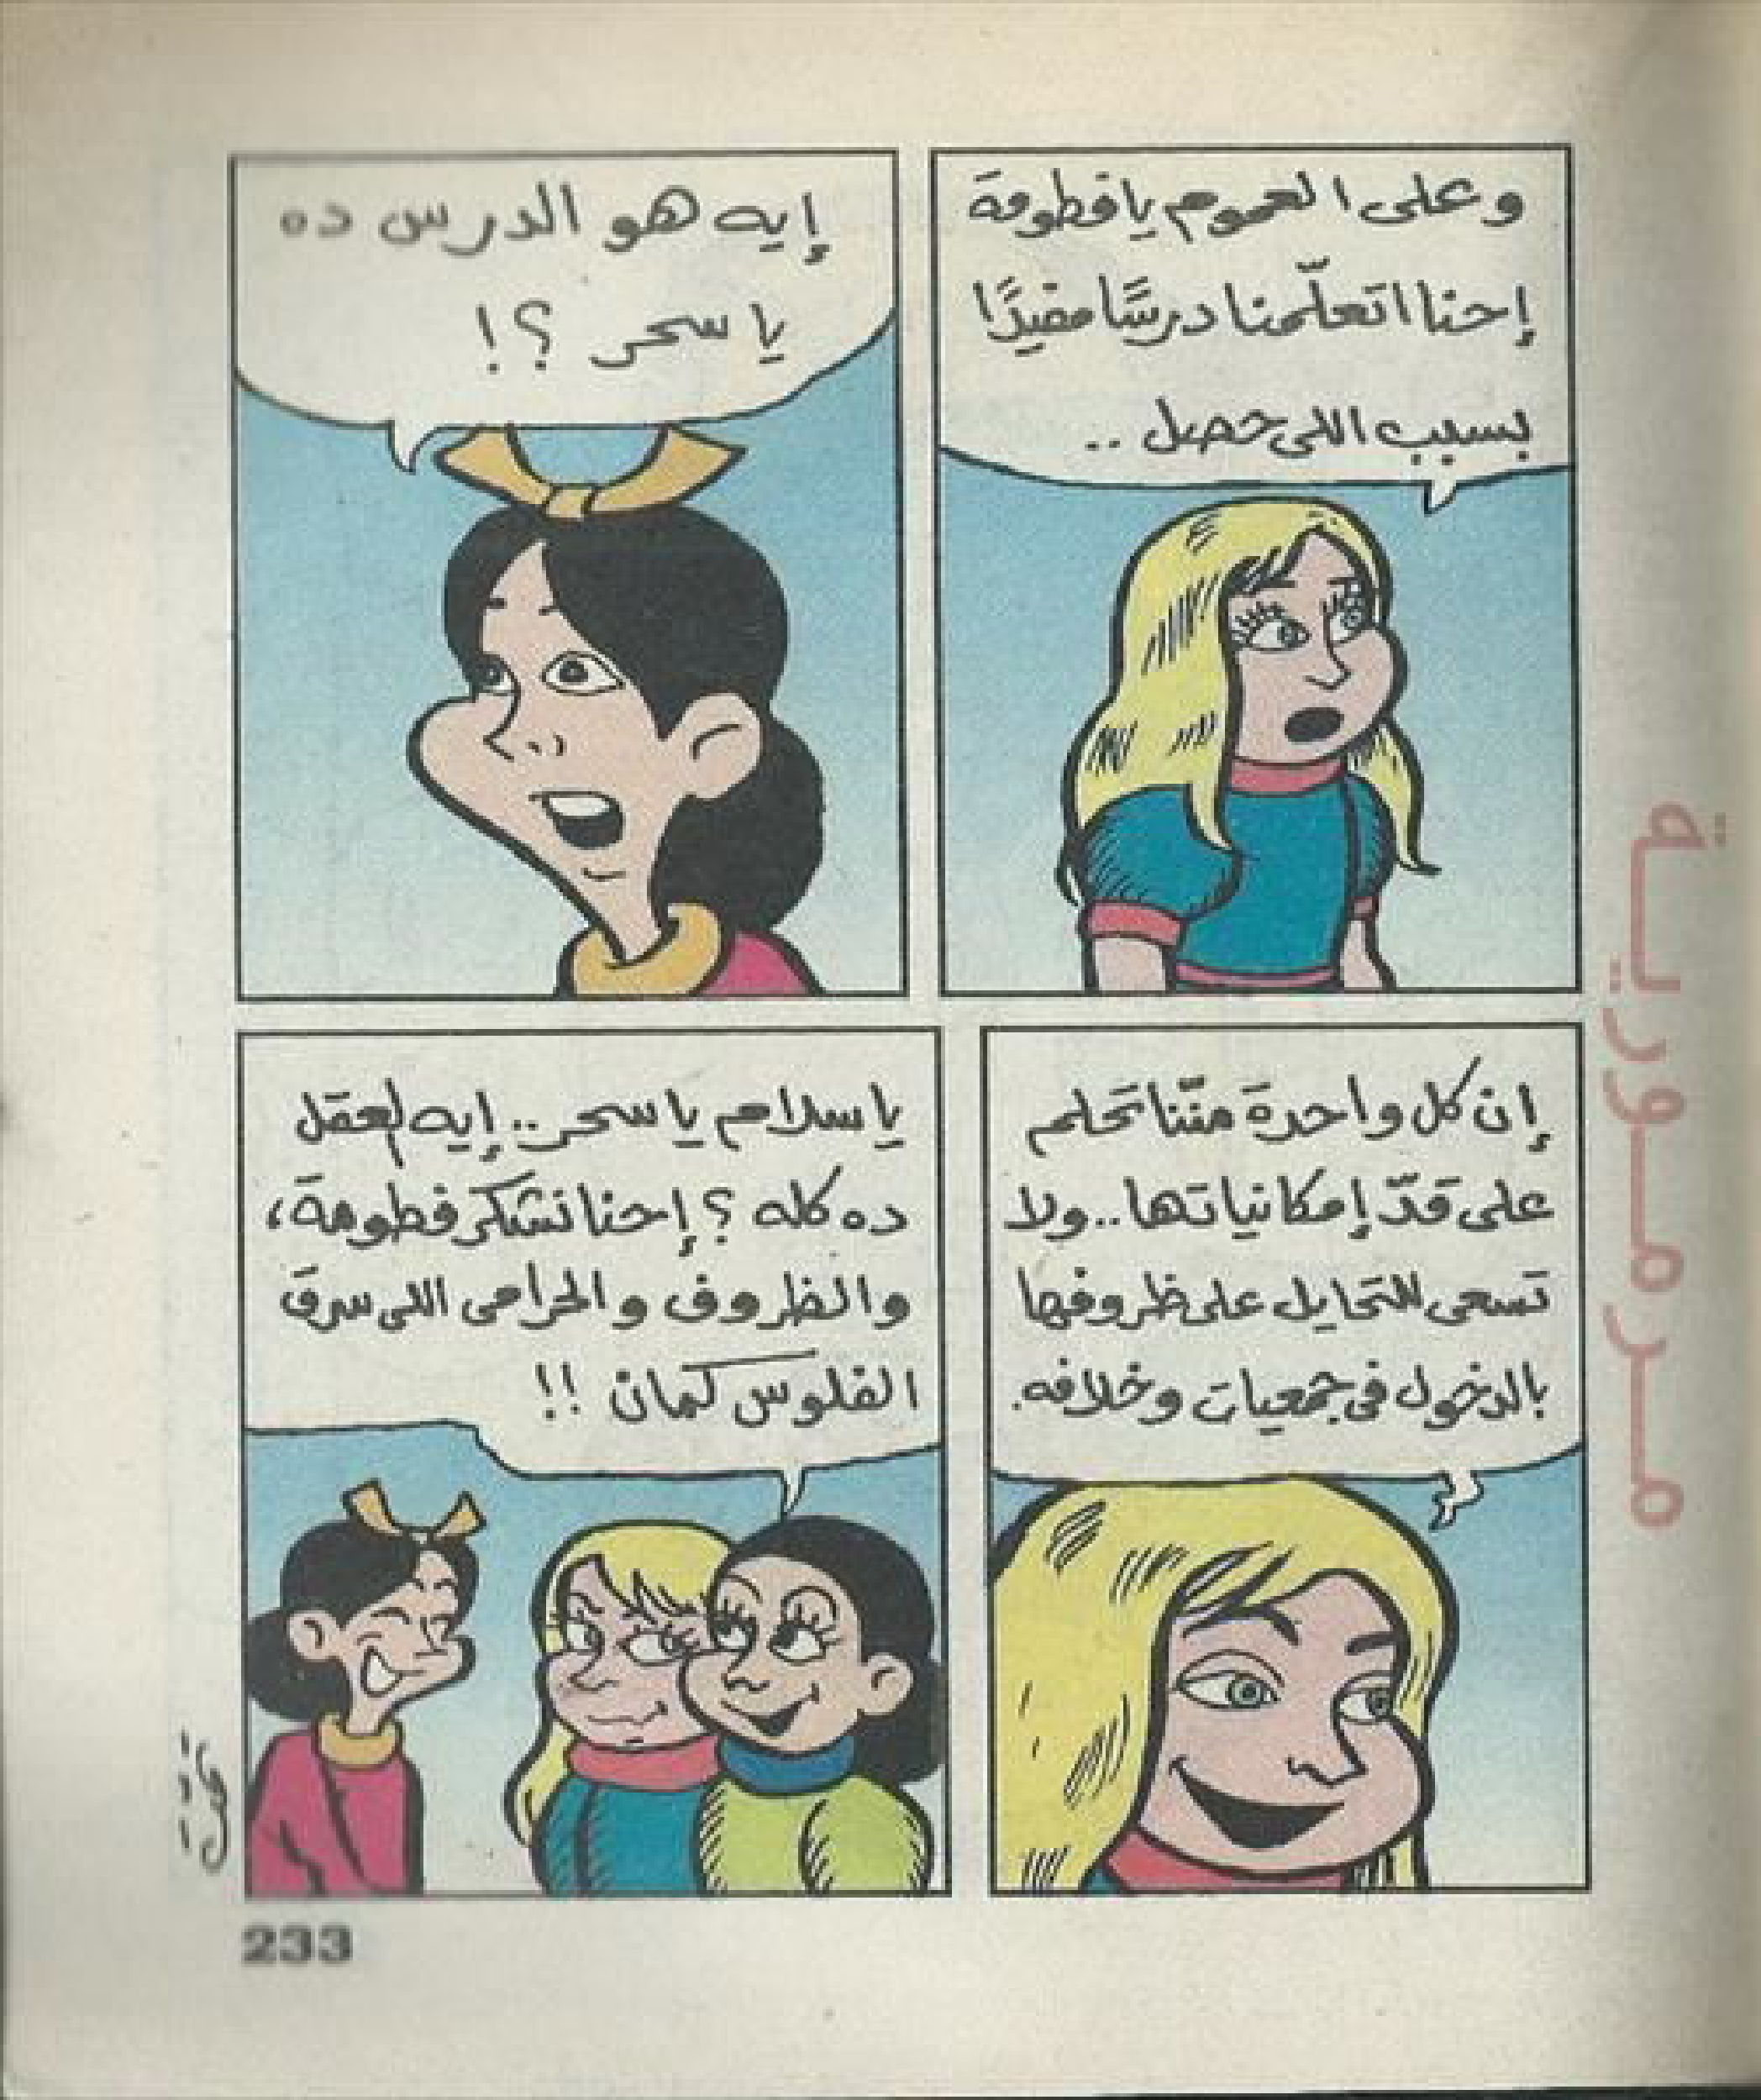 وعلى العموم يا فطومة
إحنا اتعلّمنا درسًا مفيدًا
بسبب اللى حصل ..
إيه هو الدرس ده
يا سحر ؟!
إن كل واحدة منّنا تحلم
على قدّ إمكانياتها.. ولا
تسعى للتحايل على ظروفها
بالدخول فى جمعيات وخلافه.
يا سلام يا سحر.. إيه العقل
ده كله ؟ إحنا نشكر فطومة،
والظروف والحرامى اللى سرق
الفلوس كمان !!
233
مرمورية